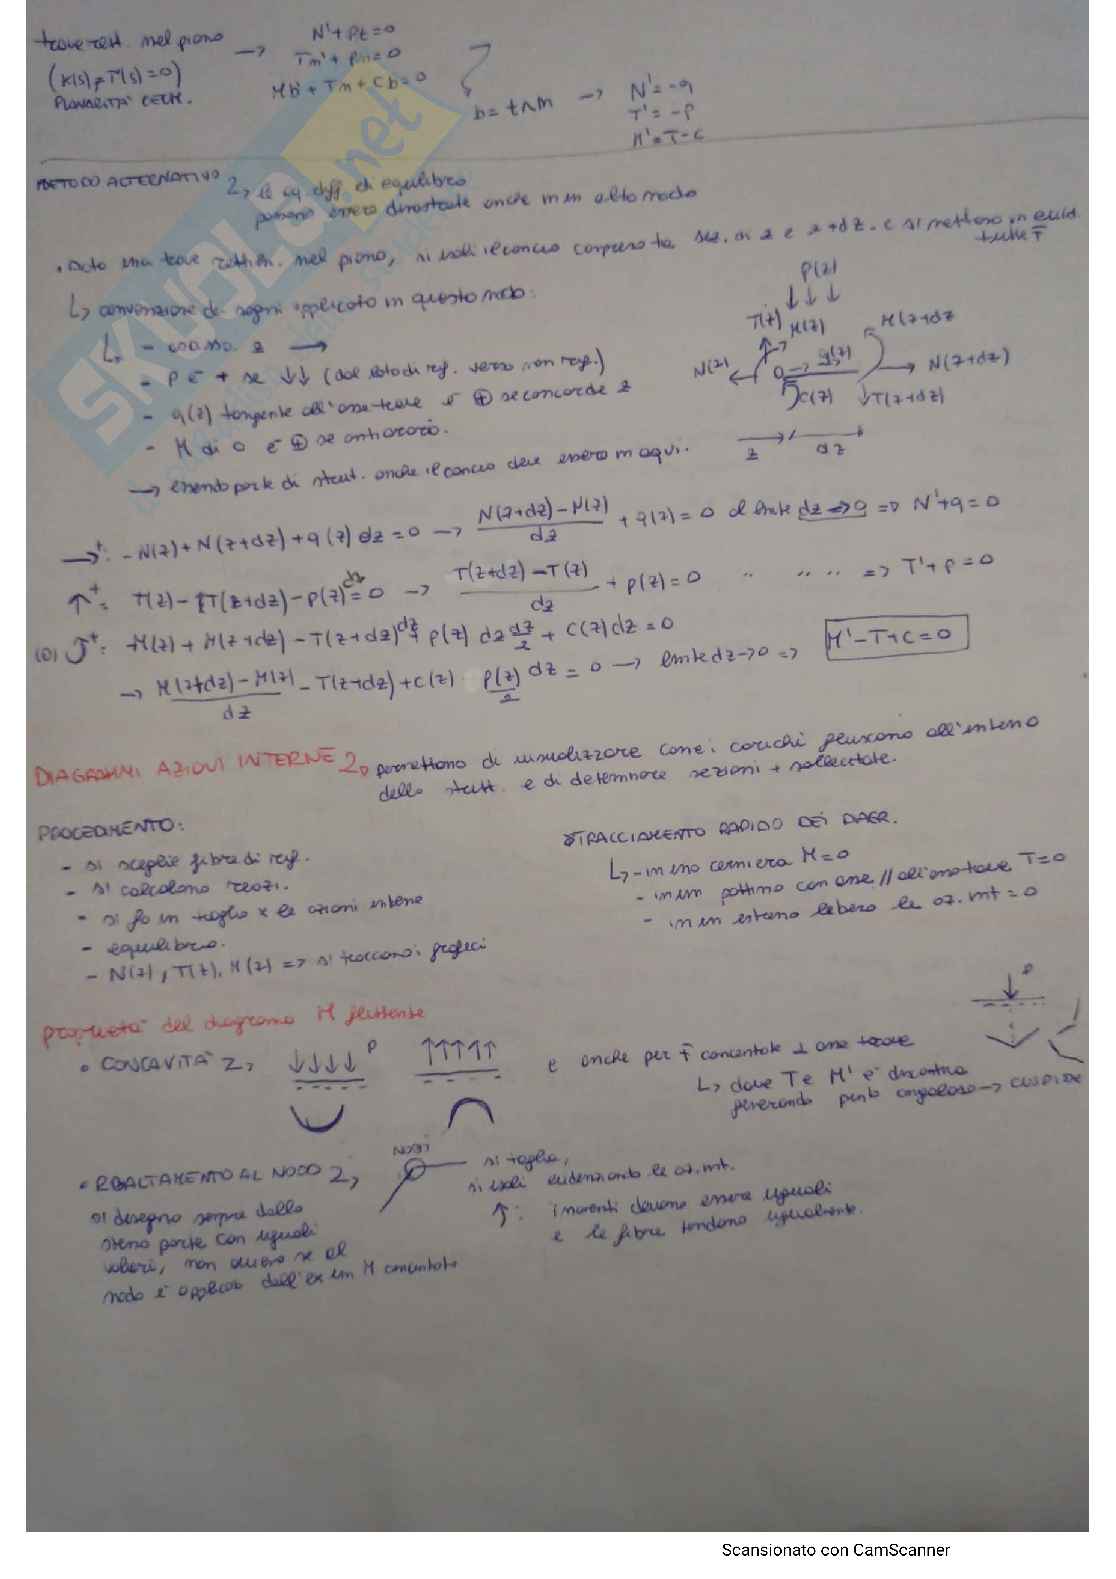 trave rett. nel piano → N'+Pt=0
(K(s), T(s)=0) Tn'+Pn=0
PLANARITÀ GEOM. Mb'+Tn+Cb=0
b=t∧n → N'=-q
T'=-P
M'=T-C
METODO ALTERNATIVO le eq diff. di equilibrio
possono essere dimostrate anche in un altro modo
• dato una trave rettilin. nel piano, si isoli il concio compreso tra sez. di z e z+dz. e si mettono in evid.
tutte F
↳ convenzione dei segni applicato in questo modo:
- asse z →
- P è + se ↓↓ (dal lato di rif. verso non rif.)
- q(z) tangente all'asse trave è ⊕ se concorde z
- M di O è ⊕ se antiorario.
→ essendo parte di strut. anche il concio deve essere in equi.
P(z)
T(z) M(z) M(z+dz
N(z) O q(z) N(z+dz)
C(z) T(z+dz)
z dz
→⁺: -N(z)+N(z+dz)+q(z)dz=0 → N(z+dz)-N(z)/dz + q(z)=0 al limite dz→0 => N'+q=0
↑⁺: T(z)-T(z+dz)-P(z)dz=0 → T(z+dz)-T(z)/dz + P(z)=0 " " " " => T'+P=0
(O) ↺⁺: -M(z)+M(z+dz)-T(z+dz)dz+P(z)dz dz/2+C(z)dz=0
→ M(z+dz)-M(z)/dz -T(z+dz)+C(z) P(z)/2 dz=0 → limite dz→0 => M'-T+C=0
DIAGRAMMI AZIONI INTERNE permettono di visualizzare come i carichi fluiscono all'interno
della strutt. e di determinare sezioni + sollecitate.
PROCEDIMENTO:
- si sceglie fibra di rif.
- si calcolano reaz.
- si fa un taglio x le azioni interne
- equilibrio.
- N(z), T(z), M(z) => si tracciano i grafici
TRACCIAMENTO RAPIDO DEI DIAGR.
↳ - in una cerniera M=0
- in un pattino con asse // all'asse trave T=0
- in un estremo libero le az. int = 0
proprietà del diagramma M flettente
• CONCAVITÀ P
e anche per F concentrate ⊥ asse trave P
↳ dove T e M' è discontinua
generando punto angoloso → CUSPIDE
• RIBALTAMENTO AL NODO NODI
si disegna sempre dalla
stessa parte con uguali
valori, non ovvero se al
nodo è applicato dall'ex un M concentrato
si taglia,
si isoli evidenziando le az. int.
↑: i momenti devono essere uguali
e le fibre tendono ugualmente.
SKUOLA.net
Scansionato con CamScanner